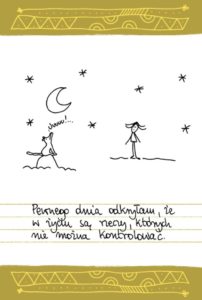 Auuu!...
Pewnego dnia odkryłam, że
w życiu są rzeczy, których
nie można kontrolować.